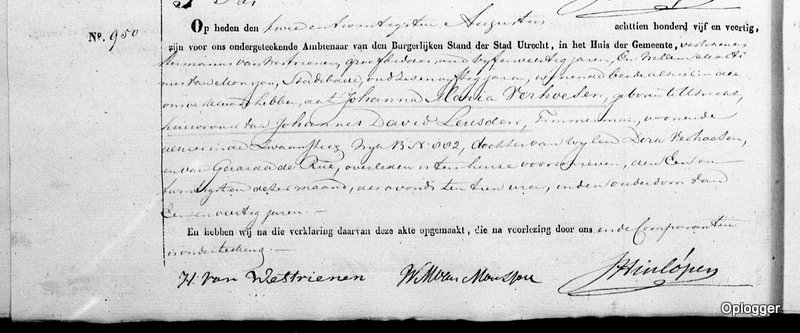 N.o 950
Op heden den twee en twintigsten Augustus achttien honderd vijf en veertig,
zijn voor ons ondergeteekende Ambtenaar van den Burgerlijken Stand der Stad Utrecht, in het Huis der Gemeente, verschenen
Hermanus van Westrienen, oud vijf en veertig jaren, En Willem
oud zes en vijftig jaren, wonende beide alhier, die
ons verklaard hebben, dat Johanna Maria Verhoesen, geboren te Utrecht,
huisvrouw van Johannes David Leusden, Timmerman, wonende
alhier in de Zwaansteeg Wijk B N. 882, dochter van wylen Dirk Verhoesen,
en van Gerarda de Rue, overleden is ten huise voorschreven, den Een en
twintigsten dezer maand, des avonds ten tien uren, in den ouderdom van
Een en veertig jaren. —
En hebben wij na die verklaring daarvan deze akte opgemaakt, die na voorlezing door ons, en de Comparanten
is onderteekend. —
H. van Westrienen W M van Monsjou J Hinlópen
Oplogger